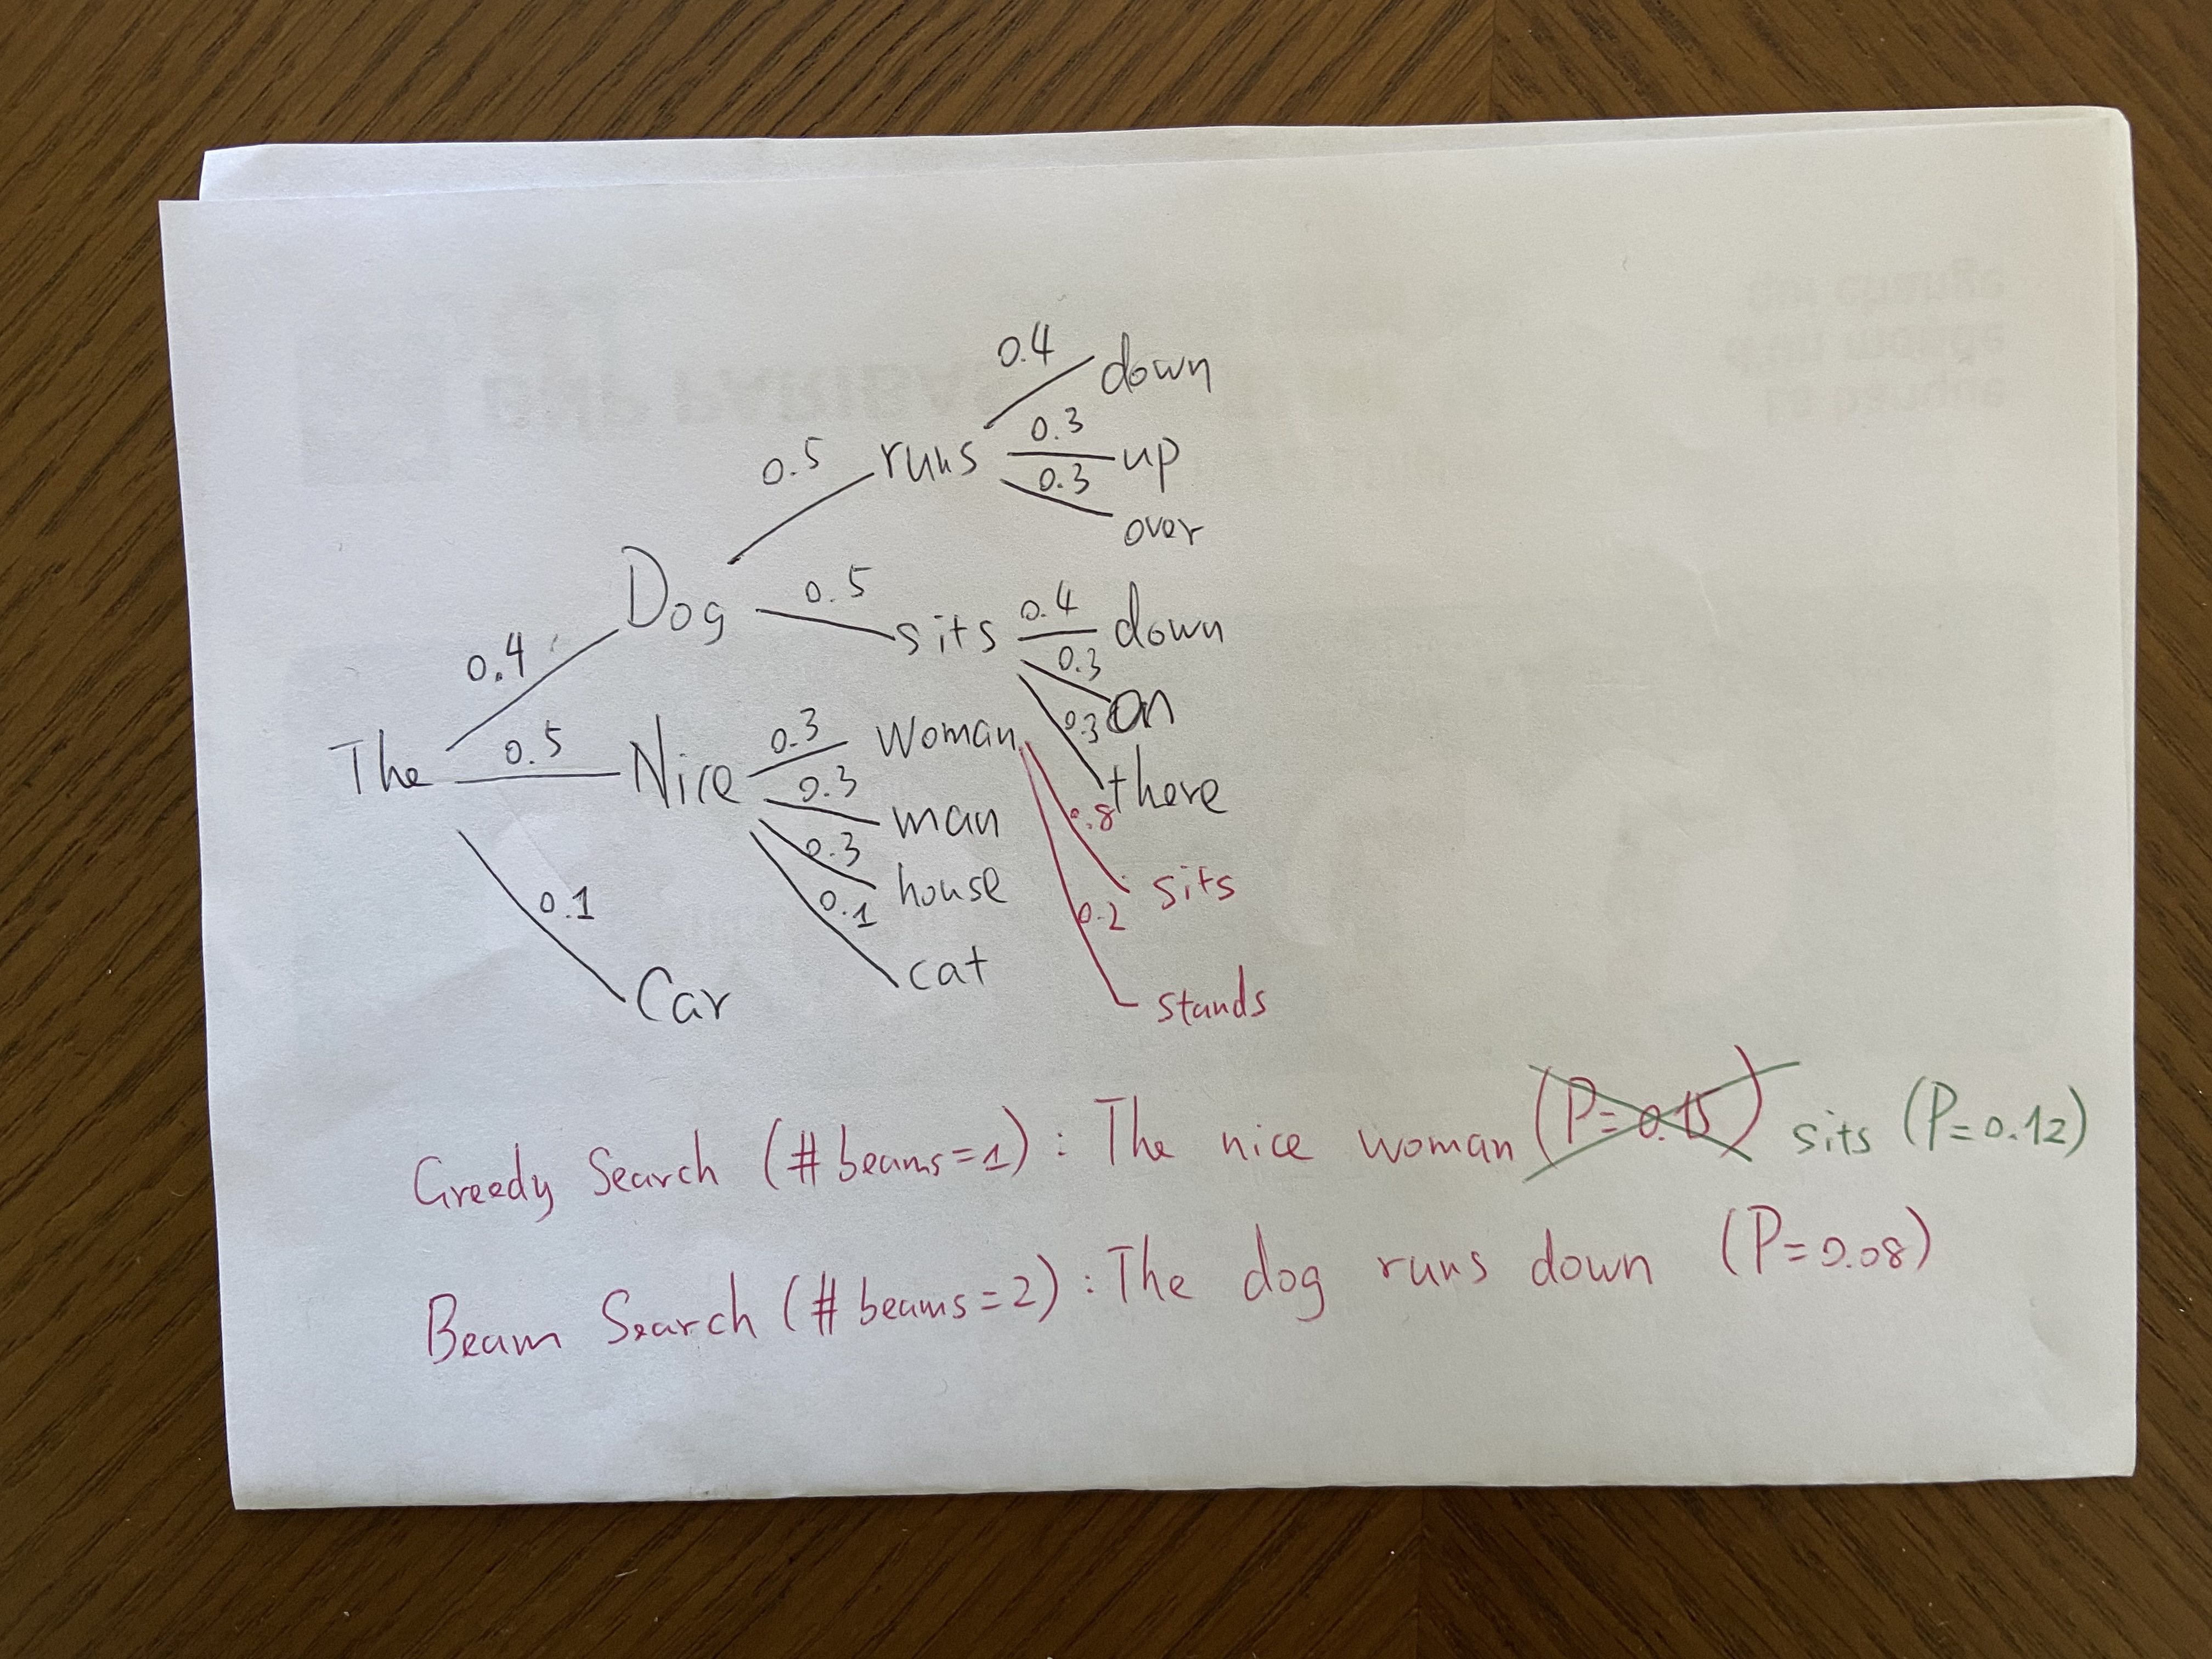 0.4 down
0.3 up
0.5 runs
0.3 over
Dog
0.5 sits
0.4 down
0.3 on
0.3 there
0.4
The
0.5 Nice
0.3 woman
0.3 man
0.3 house
0.1 cat
0.8 sits
0.2 stands
0.1 Car
Greedy Search (# beams=1) : The nice woman (P=0.15) sits (P=0.12)
Beam Search (# beams=2) : The dog runs down (P=0.08)